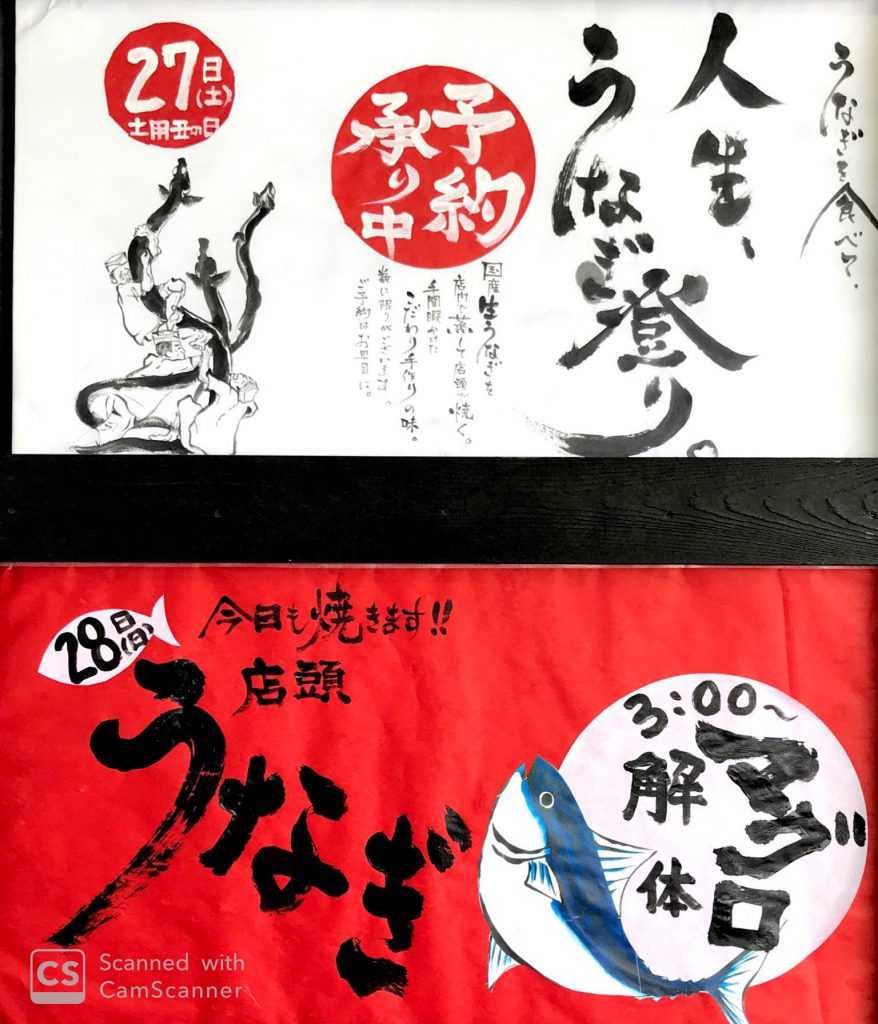 うなぎを食べて、
人生、
うなぎ登り。
予約
承り中
国産生うなぎを
店内で蒸して店頭で焼く。
手間暇かけた
こだわり手作りの味。
数に限りがございます。
ご予約はお早目に。
27日(土)
土用丑の日
28日(日)
今日も焼きます!!
店頭
うなぎ
3:00～
マグロ
解体
CS Scanned with
CamScanner